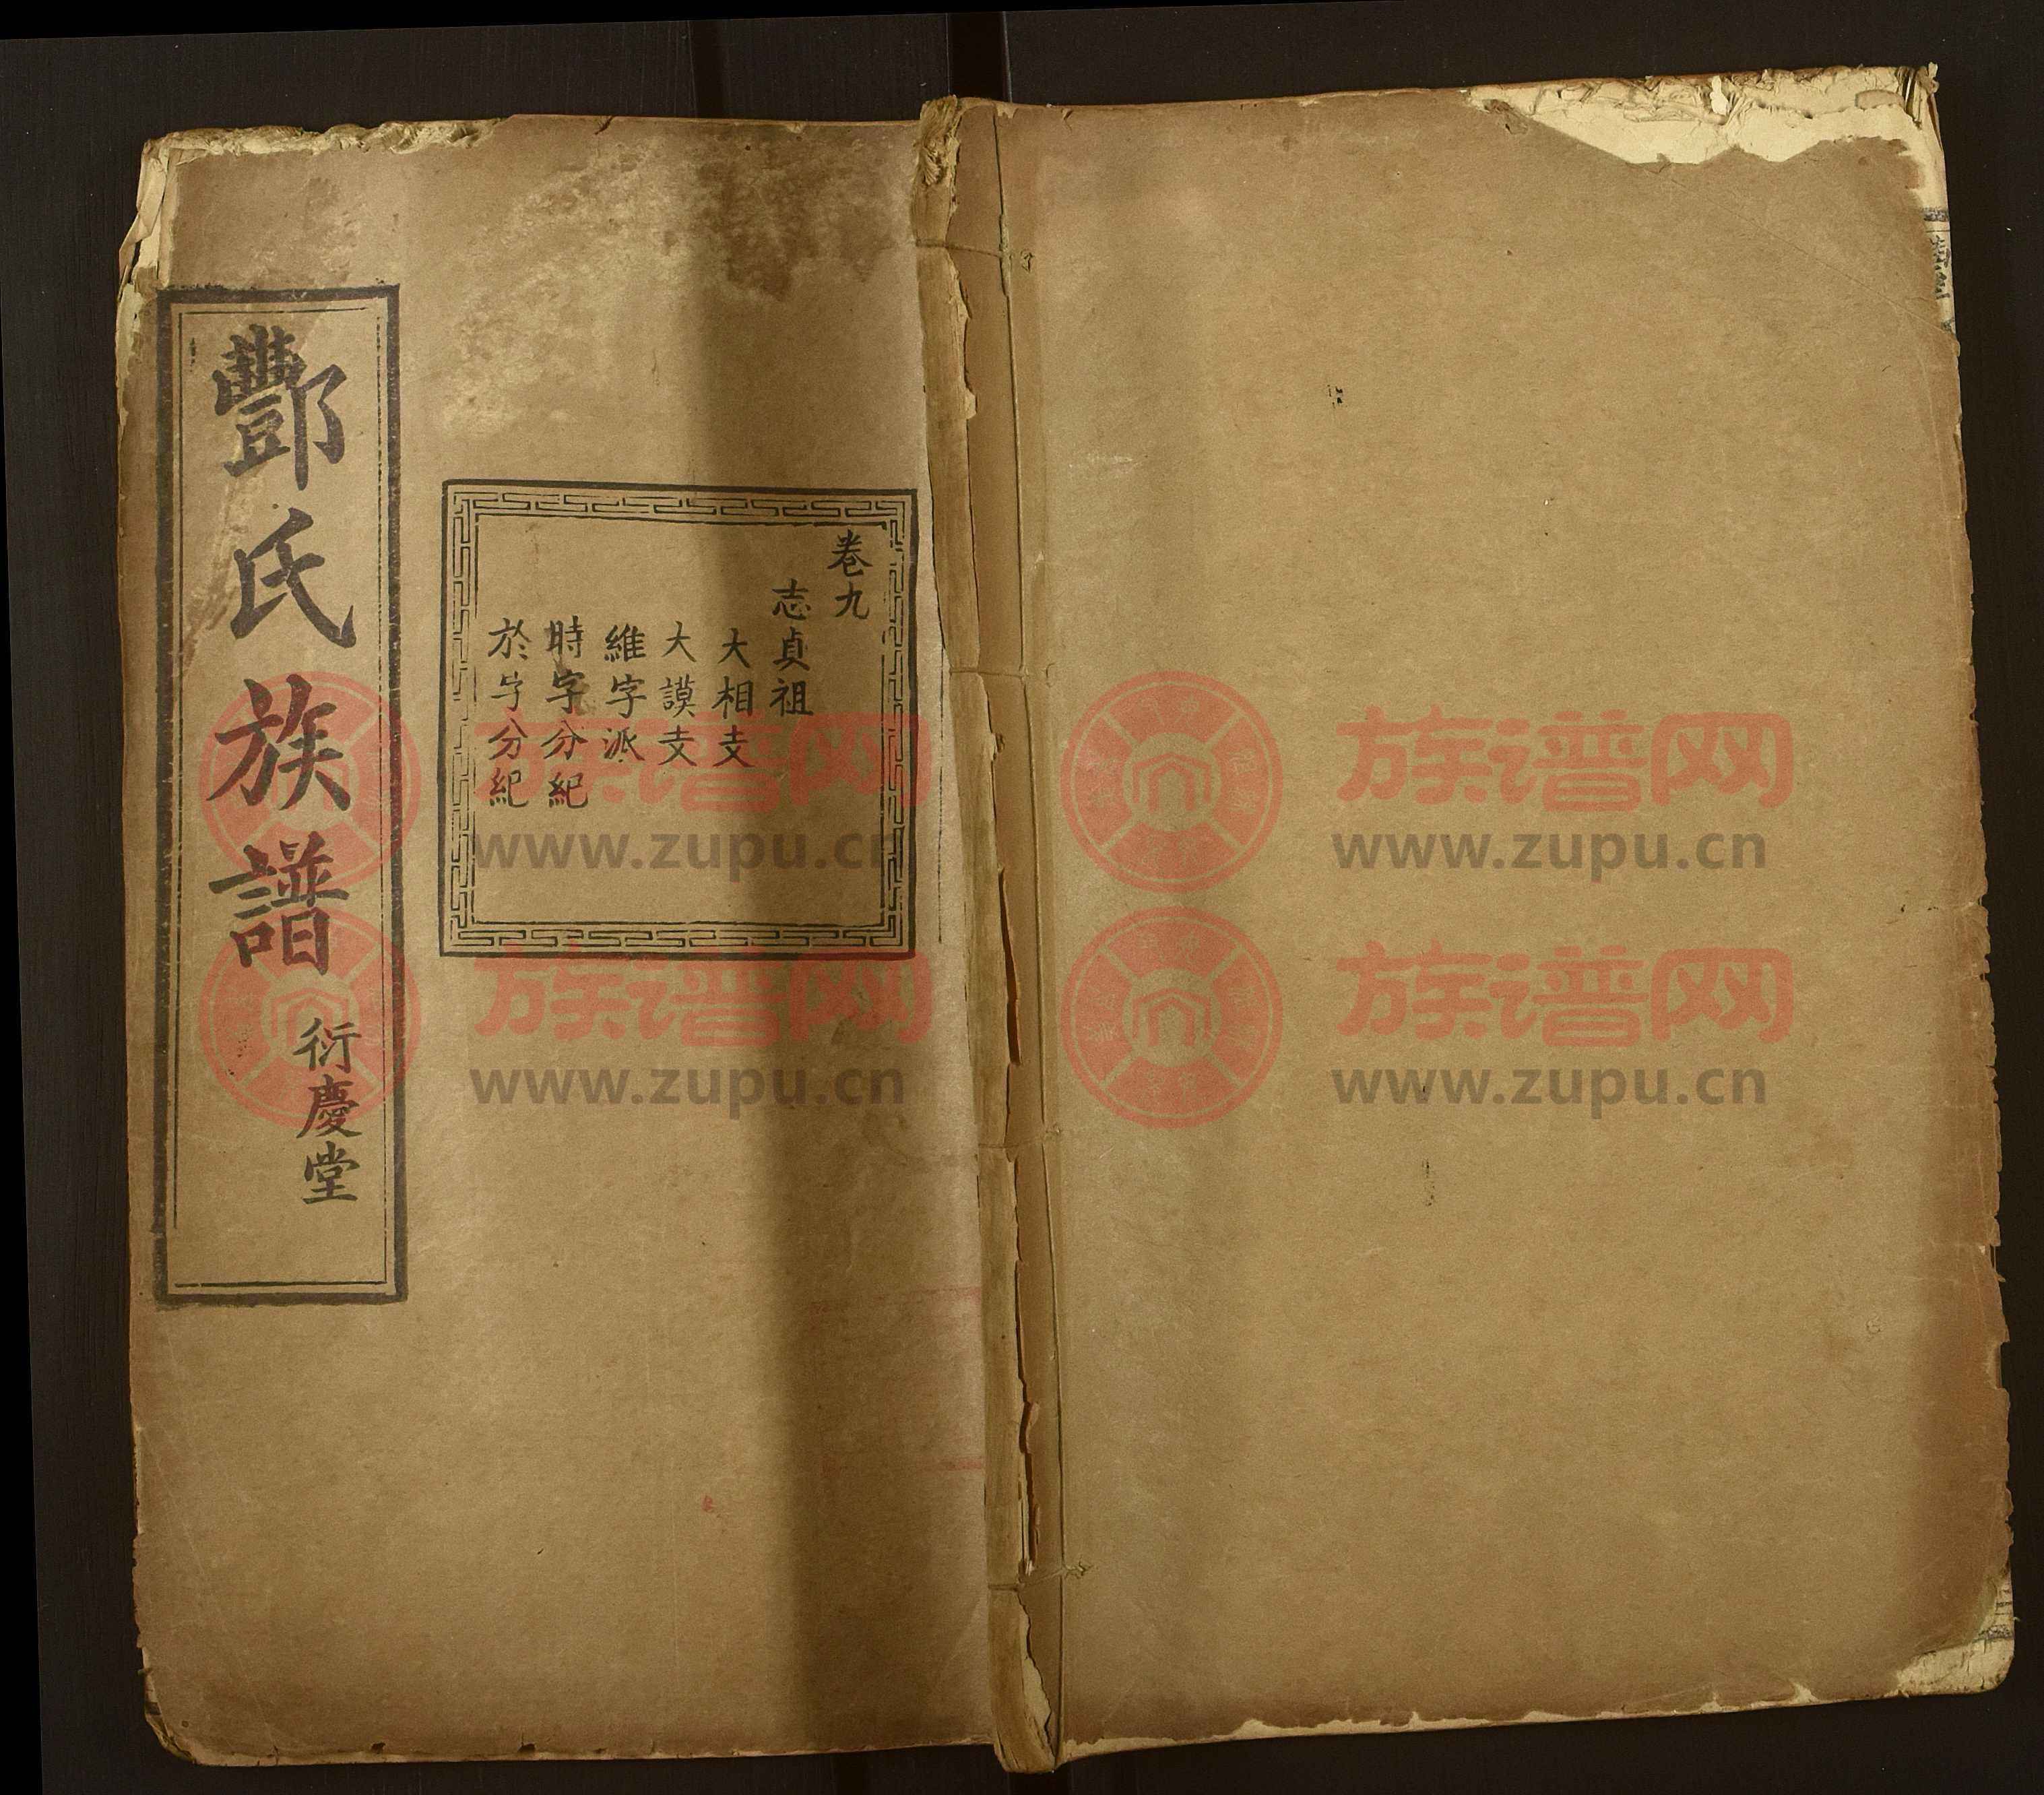 酆氏族譜
衍慶堂
卷九
志貞祖
大相支
大謨支
維字派
時字分紀
於字分紀
族谱网
www.zupu.cn
族谱网
www.zupu.cn
族谱网
www.zupu.cn
族谱网
www.zupu.cn